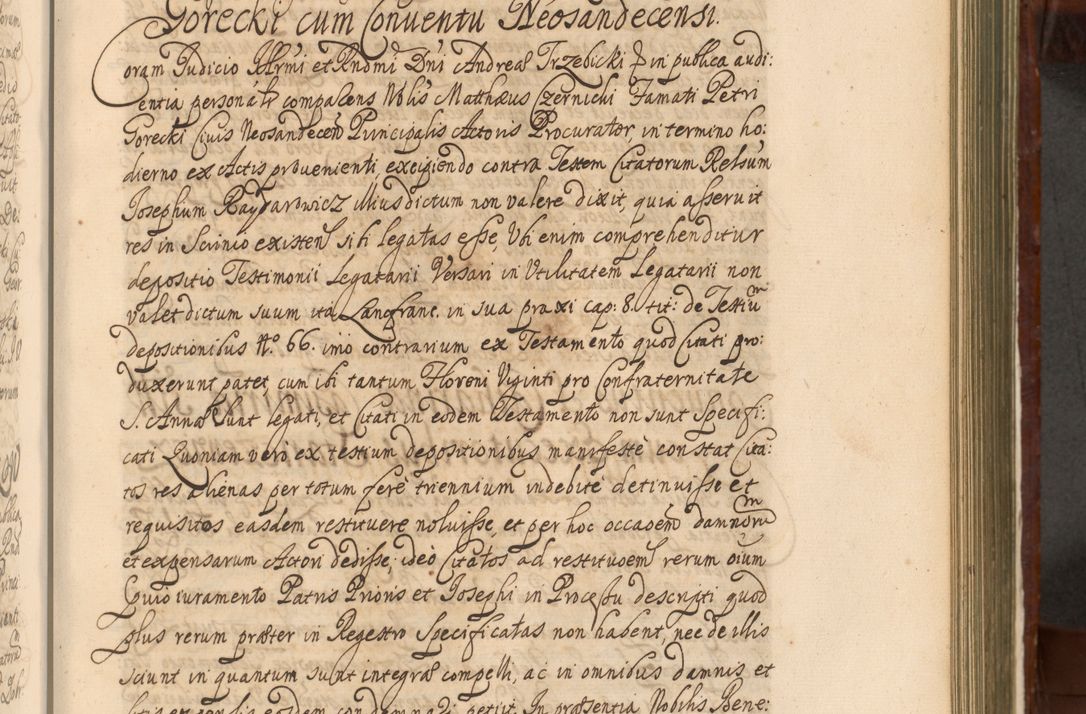 Gorecki cum Conventu Neosandecensi.
Coram Judicio Illrmi et Rndmi Dni Andreae Trzebicki in publica audi:
entia personalr comparens Nblis Matthaeus Czernicki Famati Petri
Gorecki Civis Neosandecen Principalis Actoris Procurator in termino ho:
dierno ex Actis provenienti, excipiendo contra Testem Citatorum Relsum
Josephum Raydarowicz illius dictum non valere dixit, quia asseruit
res in Scrinio existen sibi legatas esse, Ubi enim comprehenditur
depositio Testimonii Legatarii Versari in Utilitatem Legatarii non
valet dictum suum ita Lanfranc. in sua praxi cap: 8. tit: de Testiu
depositionibus No 66. imo contrarium ex Testamento quod Citati pro:
duxerunt patet, cum ibi tantum Floreni Viginti pro Confraternitate
S. Annae sunt legati, et Citati in eodem Testamento non sunt Specifi:
cati Quoniam vero ex testium depositionibus manifeste constat Cita:
tos res alienas per totum fere triennium indebite detinuisse et
requisitos easdem restituere noluisse, et per hoc occaoem damnoru
et expensarum Actori dedisse, ideo Citatos ad restituoem rerum oium
Praevio iuramento Patris Prioris et Josephi in Processu descripti quod
plus rerum praeter in Regestro Specificatas non habent, nec de illis
sciunt in quantum sunt integrae compelli, ac in omnibus damnis et
litis expensis eosdem condemnari petiit. In praesentia Nobilis Bene: